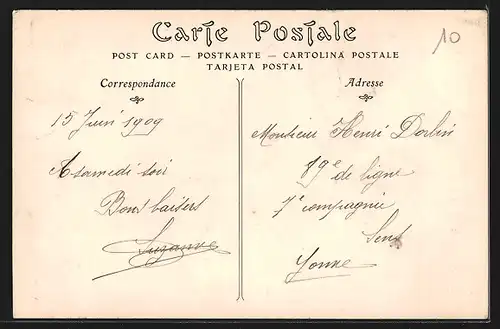 Carte Postale
10
POST CARD — POSTKARTE — CARTOLINA POSTALE
TARJETA POSTAL
Correspondance
Adresse
15 Juin 1909
A samedi soir
Bons baisers
Suzanne
Monsieur Henri Dorlin
89e de ligne
7e compagnie
Sens
Yonne